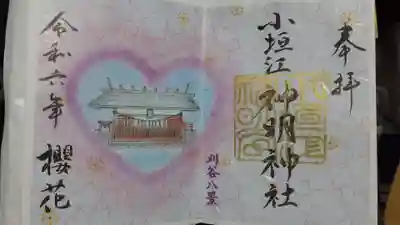 奉拝
小垣江神明神社
刈谷八景
令和六年 櫻花